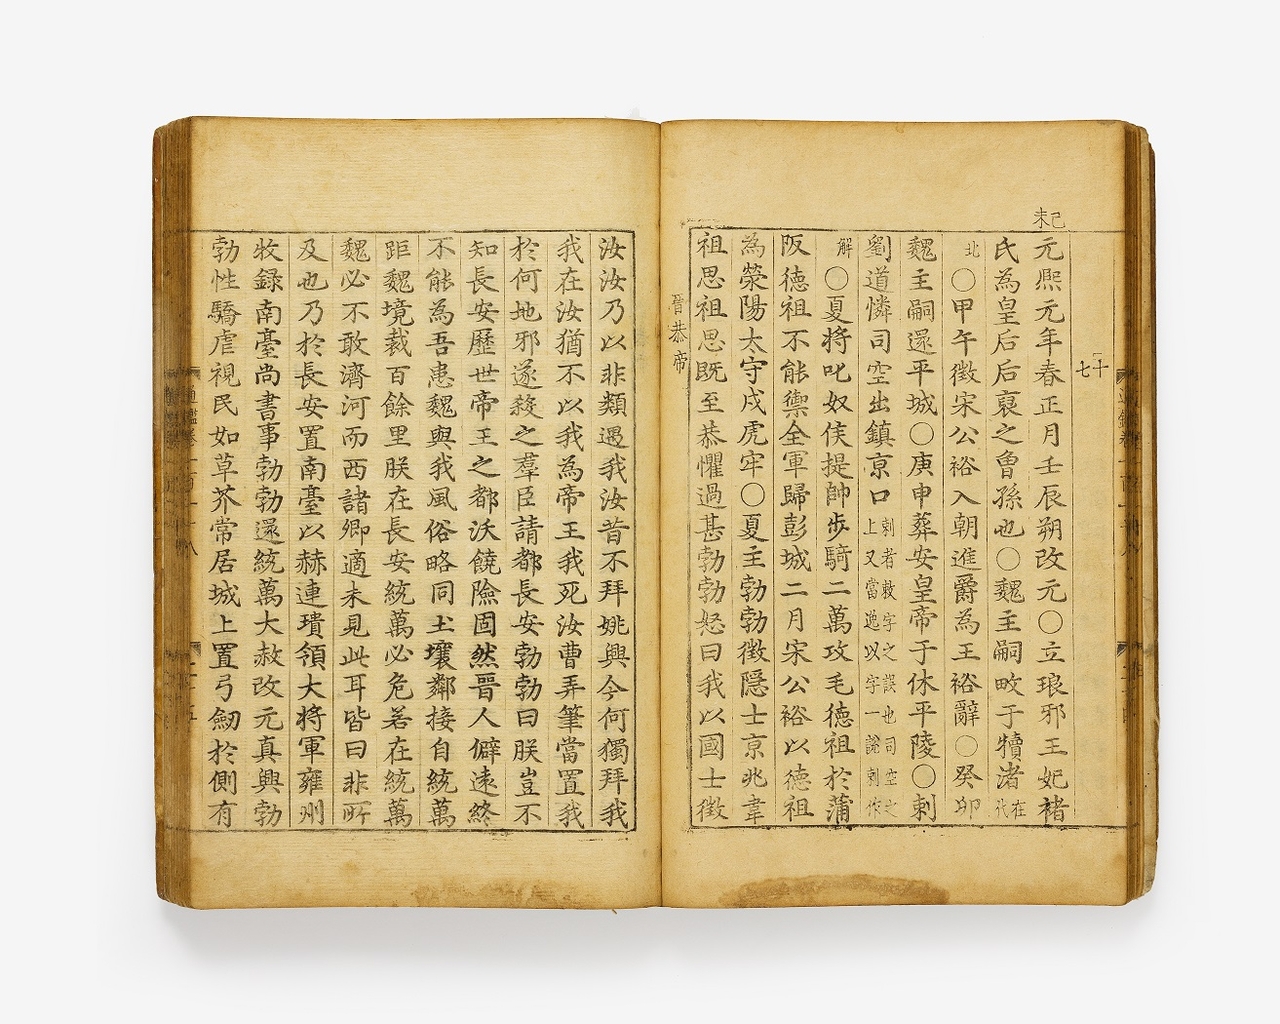 己未
元熙元年春正月壬辰朔改元〇立琅邪王妃褚
氏為皇后后裒之曾孫也〇魏主嗣畋于犢渚在代
北〇甲午徵宋公裕入朝進爵為王裕辭〇癸卯
魏主嗣還平城〇庚申葬安皇帝于休平陵〇刺
劉道憐司空出鎮京口刺者敕字之誤也司空之上又當逸以字一說刺作
解〇夏將叱奴侯提帥步騎二萬攻毛德祖於蒲
阪德祖不能禦全軍歸彭城二月宋公裕以德祖
為滎陽太守戍虎牢〇夏主勃勃徵隱士京兆韋
祖思祖思既至恭懼過甚勃勃怒曰我以國士徵
晉恭帝
汝汝乃以非類遇我汝昔不拜姚興今何獨拜我
我在汝猶不以我為帝王我死汝曹弄筆當置我
於何地邪遂殺之羣臣請都長安勃勃曰朕豈不
知長安歷世帝王之都沃饒險固然晉人僻遠終
不能為吾患魏與我風俗略同土壤鄰接自統萬
距魏境裁百餘里朕在長安統萬必危若在統萬
魏必不敢濟河而西諸卿適未見此耳皆曰非所
及也乃於長安置南臺以赫連璝領大將軍雍州
牧錄南臺尚書事勃勃還統萬大赦改元真興勃
勃性驕虐視民如草芥常居城上置弓劒於側有